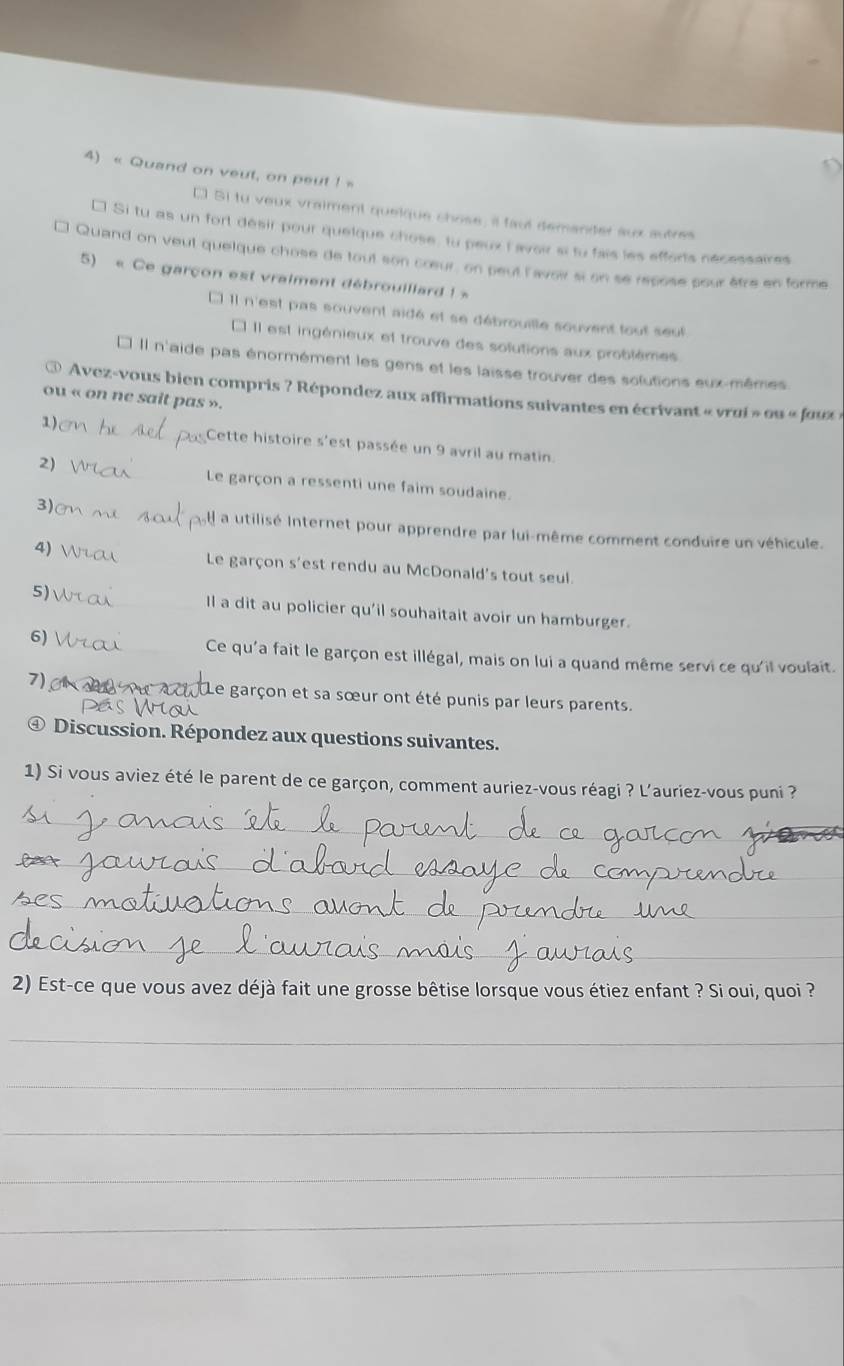 4) « Quand on veut, on peut ! »
☐ Si tu veux vraiment quelque chose, il faut demander aux autres
☐ Si tu as un fort désir pour quelque chose, tu peux l'avoir si tu fais les efforts nécessaires
☐ Quand on veut quelque chose de tout son cœur, on peut l'avoir si on se repose pour être en forme
5) « Ce garçon est vraiment débrouillard ! »
☐ Il n'est pas souvent aidé et se débrouille souvent tout seul
☐ Il est ingénieux et trouve des solutions aux problèmes
☐ Il n'aide pas énormément les gens et les laisse trouver des solutions eux-mêmes.
③ Avez-vous bien compris ? Répondez aux affirmations suivantes en écrivant « vrai » ou « faux »
ou « on ne sait pas ».
1) on ne pas Cette histoire s'est passée un 9 avril au matin.
2) Vrai Le garçon a ressenti une faim soudaine.
3) on ne sait pas Il a utilisé Internet pour apprendre par lui-même comment conduire un véhicule.
4) Vrai Le garçon s'est rendu au McDonald's tout seul.
5) Vrai Il a dit au policier qu'il souhaitait avoir un hamburger.
6) Vrai Ce qu'a fait le garçon est illégal, mais on lui a quand même servi ce qu'il voulait.
7) on ne Le garçon et sa sœur ont été punis par leurs parents.
pas Vrai
④ Discussion. Répondez aux questions suivantes.
1) Si vous aviez été le parent de ce garçon, comment auriez-vous réagi ? L'auriez-vous puni ?
si j'anais ete le parent de ce garcon
jaurais d'abard essaye de comprendre
ses motivations avont de prendre une
decision je l'aurais mais j'aurais
2) Est-ce que vous avez déjà fait une grosse bêtise lorsque vous étiez enfant ? Si oui, quoi ?